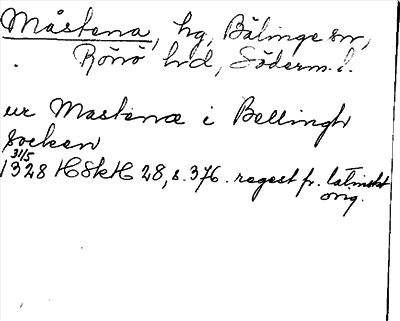 Måstena, hg, Bälinge sn,
Rönö hd, Söderm. l.
ur Mastenæ i Bellingh
socken
31/5
1328 HSkH 28, s. 376. regest fr. latinskt
orig.